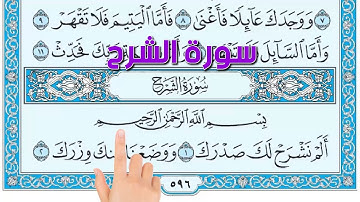 ٧ وَوَجَدَكَ عَآئِلًا فَأَغْنَىٰ ٨ فَأَمَّا ٱلْيَتِيمَ فَلَا تَقْهَرْ
٩ وَأَمَّا ٱلسَّآئِلَ فَحَدِّثْ ١١
سورة الشرح
سُورَةُ الشَّرْحِ
بِسْمِ ٱللَّهِ ٱلرَّحْمَٰنِ ٱلرَّحِيمِ
أَلَمْ نَشْرَحْ لَكَ صَدْرَكَ ١ وَوَضَعْنَا عَنكَ وِزْرَكَ ٢
٥٩٦